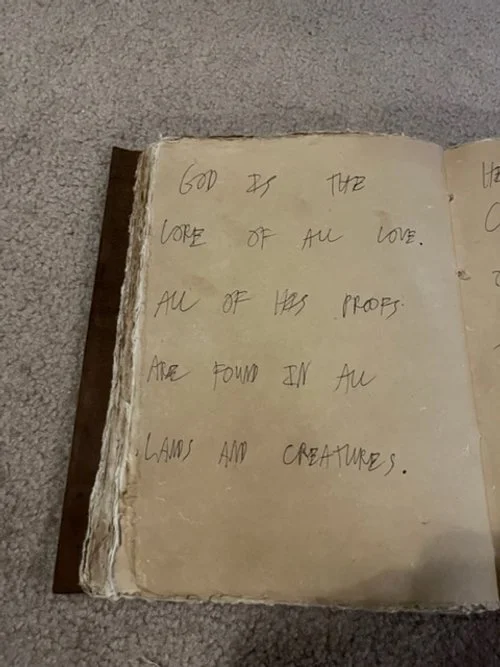 GOD IS THE
CORE OF ALL LOVE.
ALL OF HIS PROOFS
ARE FOUND IN ALL
LANDS AND CREATURES.